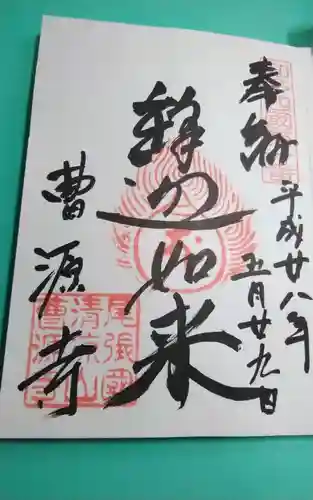 奉納
平成廿八年
五月廿九日
釋迦如来
曹源寺
尾張國
清涼山
曹源寺